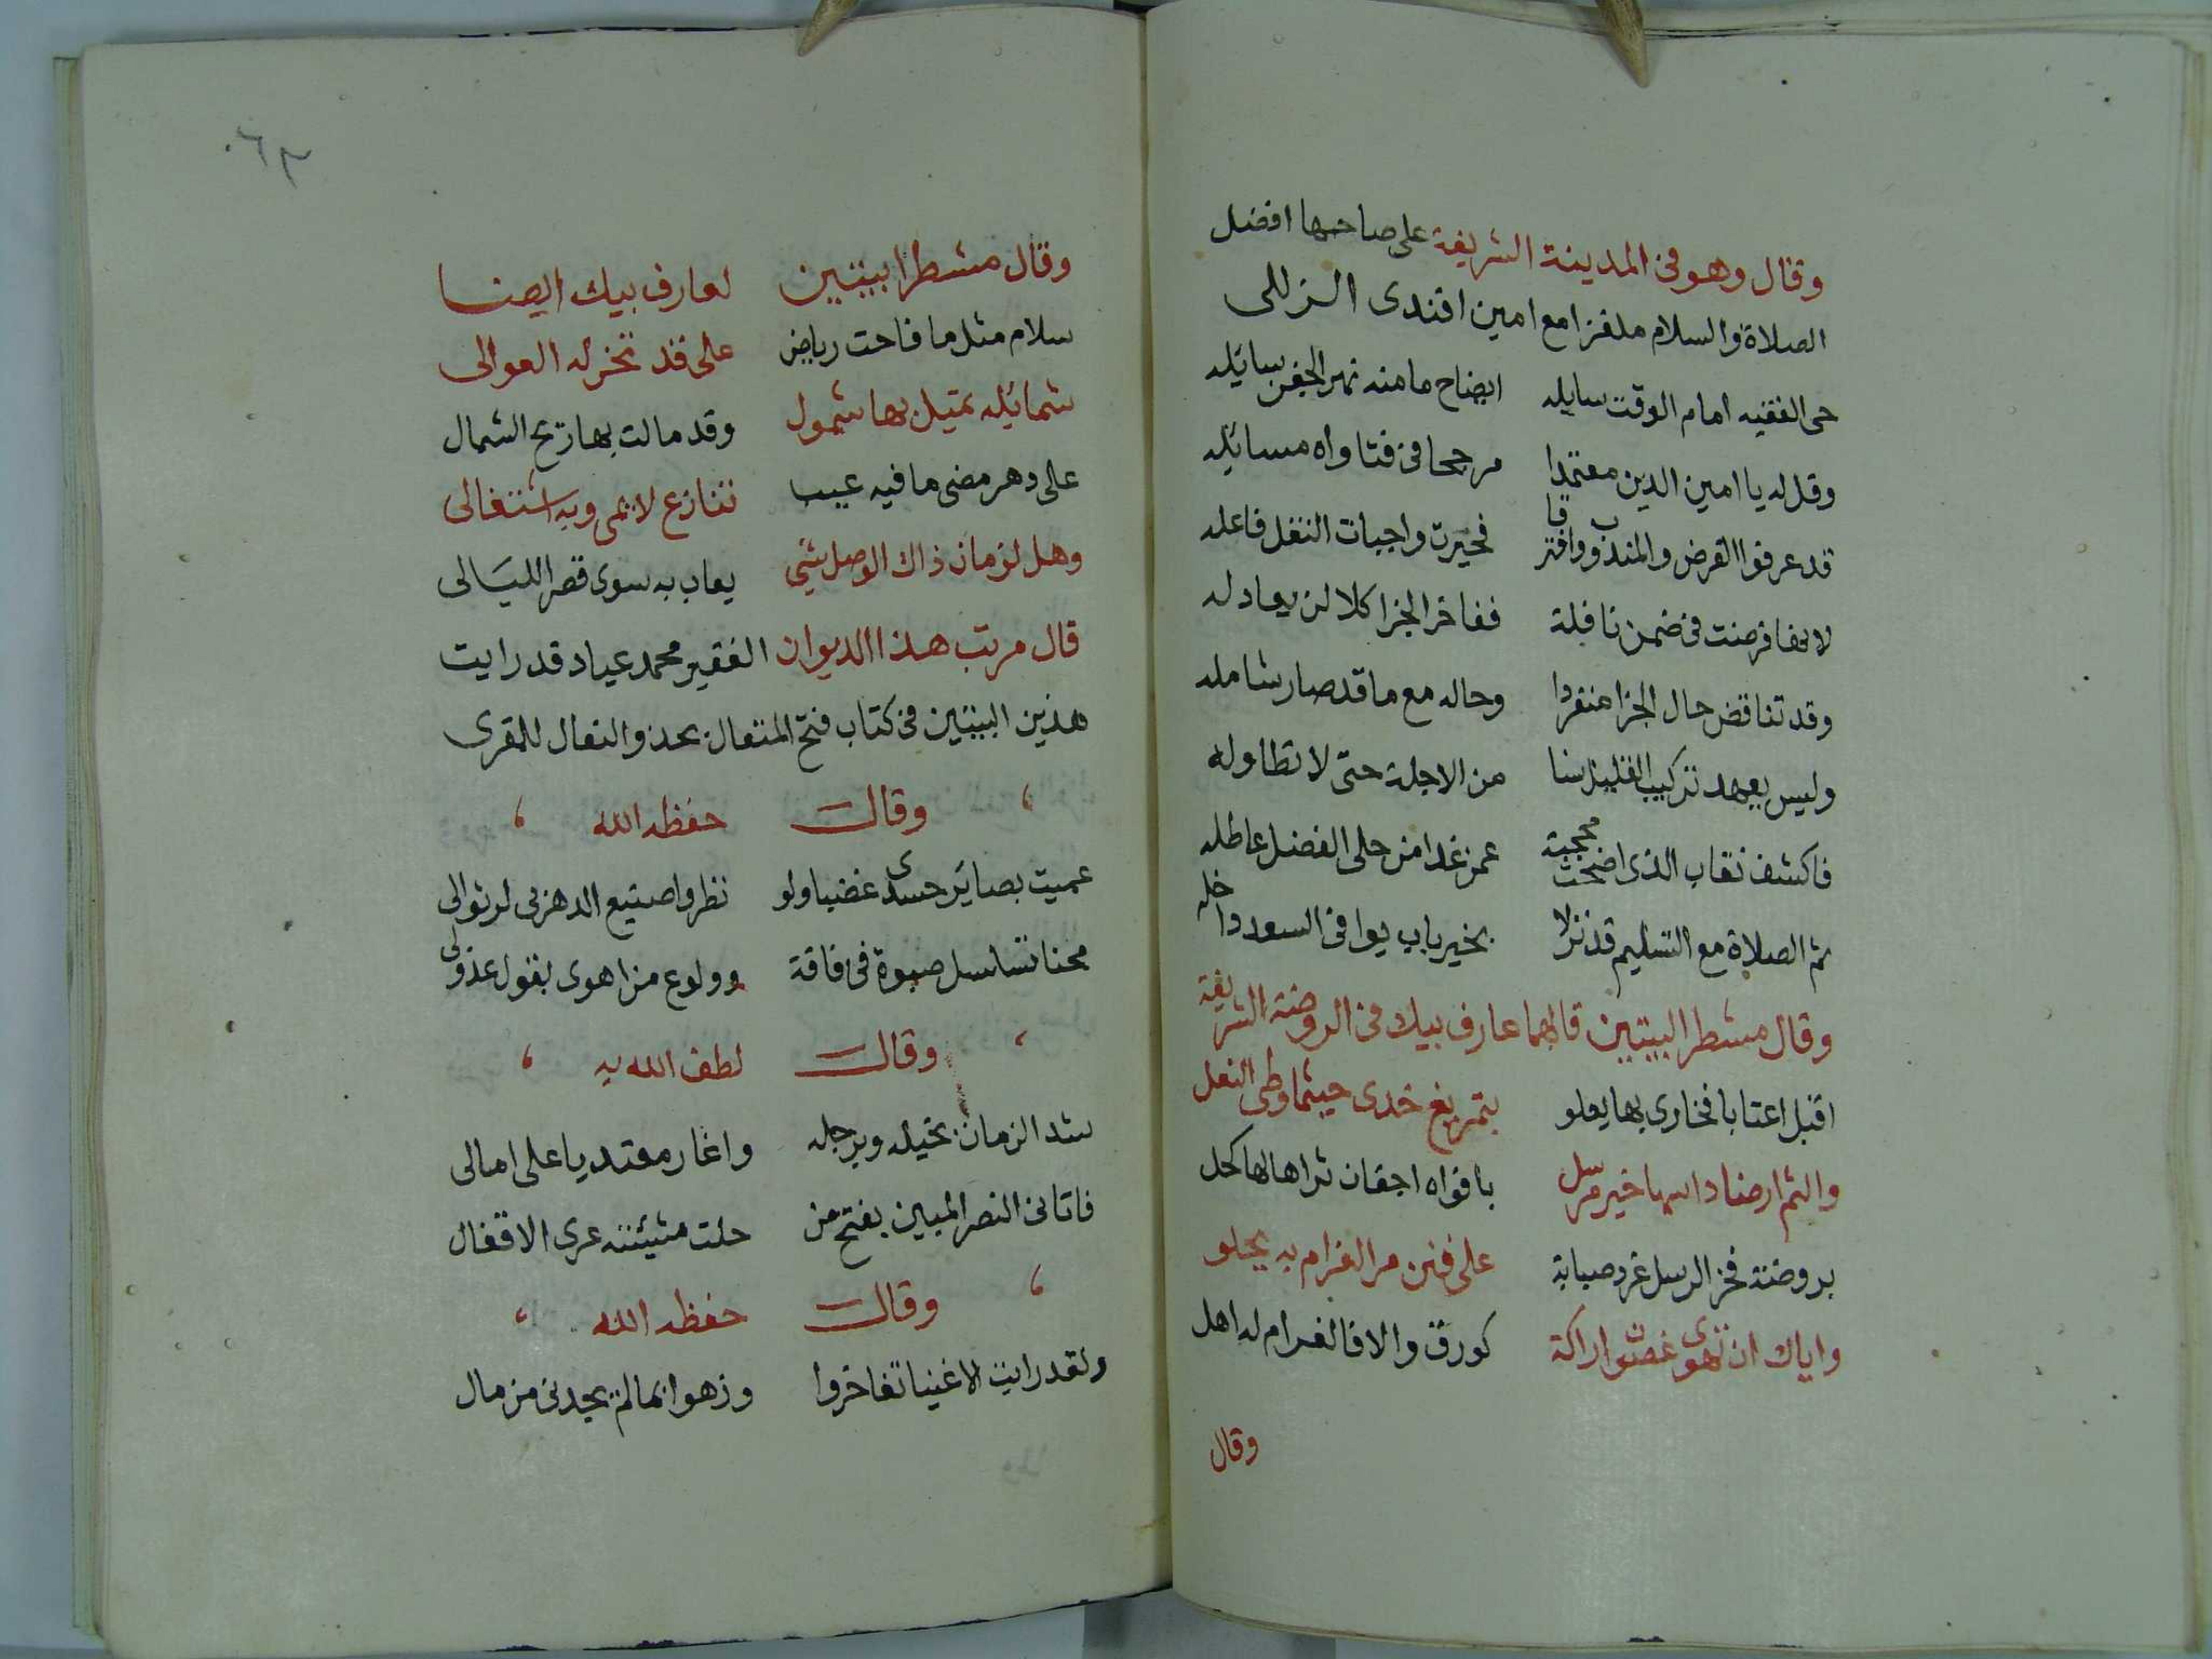 وقال وهو في المدينة الشريفة على صاحبها افضل
الصلاة والسلام ملغزا مع امين افندى الزللى
حى الفقيه امام الوقت سايله ايضاح ما منه نهر الجفن سايله
وقل له يا امين الدين معتمدا مرجحا في فتاواه مسائله
قد عرفوا الفرض والمندوب وافترقا فحيرت واجبات النفل فاعله
لا نفا فرضت في ضمن نافلة ففاخر الجزا كلا لن يعادله
وقد تناقض حال الجزا منفردا وحاله مع ما قد صار شامله
وليس يعهد تركيب القليل سنا من الاجلة حتى لا تطاوله
فاكشف نقاب الذى اضحت محجبة عمن غدا من حلى الفضل عاطله
ثم الصلاة مع التسليم قد نزلا بخير باب يوافى السعد داخله
وقال مشطرا لبيتين قالهما عارف بيك في الروضة الشريفة
اقبل اعتابا فخارى بها يعلو بتمريغ خدى حيثما وطى النعل
والثم ارضا داسها خير مرسل بافواه اجفان ثراها لها كحل
بروضة فخر الرسل غرد صبابة على فنن مر الغرام به يحلو
واياك ان تهوى غصون اراكة كورق والا فالغرام له اهل
وقال
٠٦٣
وقال مشطرا بيتين لعارف بيك ايضا
سلام مثل ما فاحت رياض على قد تخر له العوالى
شمائله تميل بها شمول وقد مالت بها ريح الشمال
على دهر مضى ما فيه عيب تنازع لائمى وبه اشتغالى
وهل لزمان ذاك الوصل شيء يعاب به سوى قصر الليالى
قال مرتب هذا الديوان الفقير محمد عياد قد رايت
هذين البيتين في كتاب فتح المتعال بحذو النعال للمقرى
وقال حفظه الله
عميت بصائر حسدى غضبا ولو نظروا صنيع الدهر بى لرثوا لى
محنا تسلسل صبوة في فاقة وولوع من اهوى بقول عذولى
وقال لطف الله به
شد الزمان بخيله وبرجله واغار معتديا على امالى
فاتانى النصر المبين بفتح من حلت مشيئته عرى الاقفال
وقال حفظه الله
ولقد رايت الاغنيا تفاخروا وزهوا بما لم يجدنى من مال